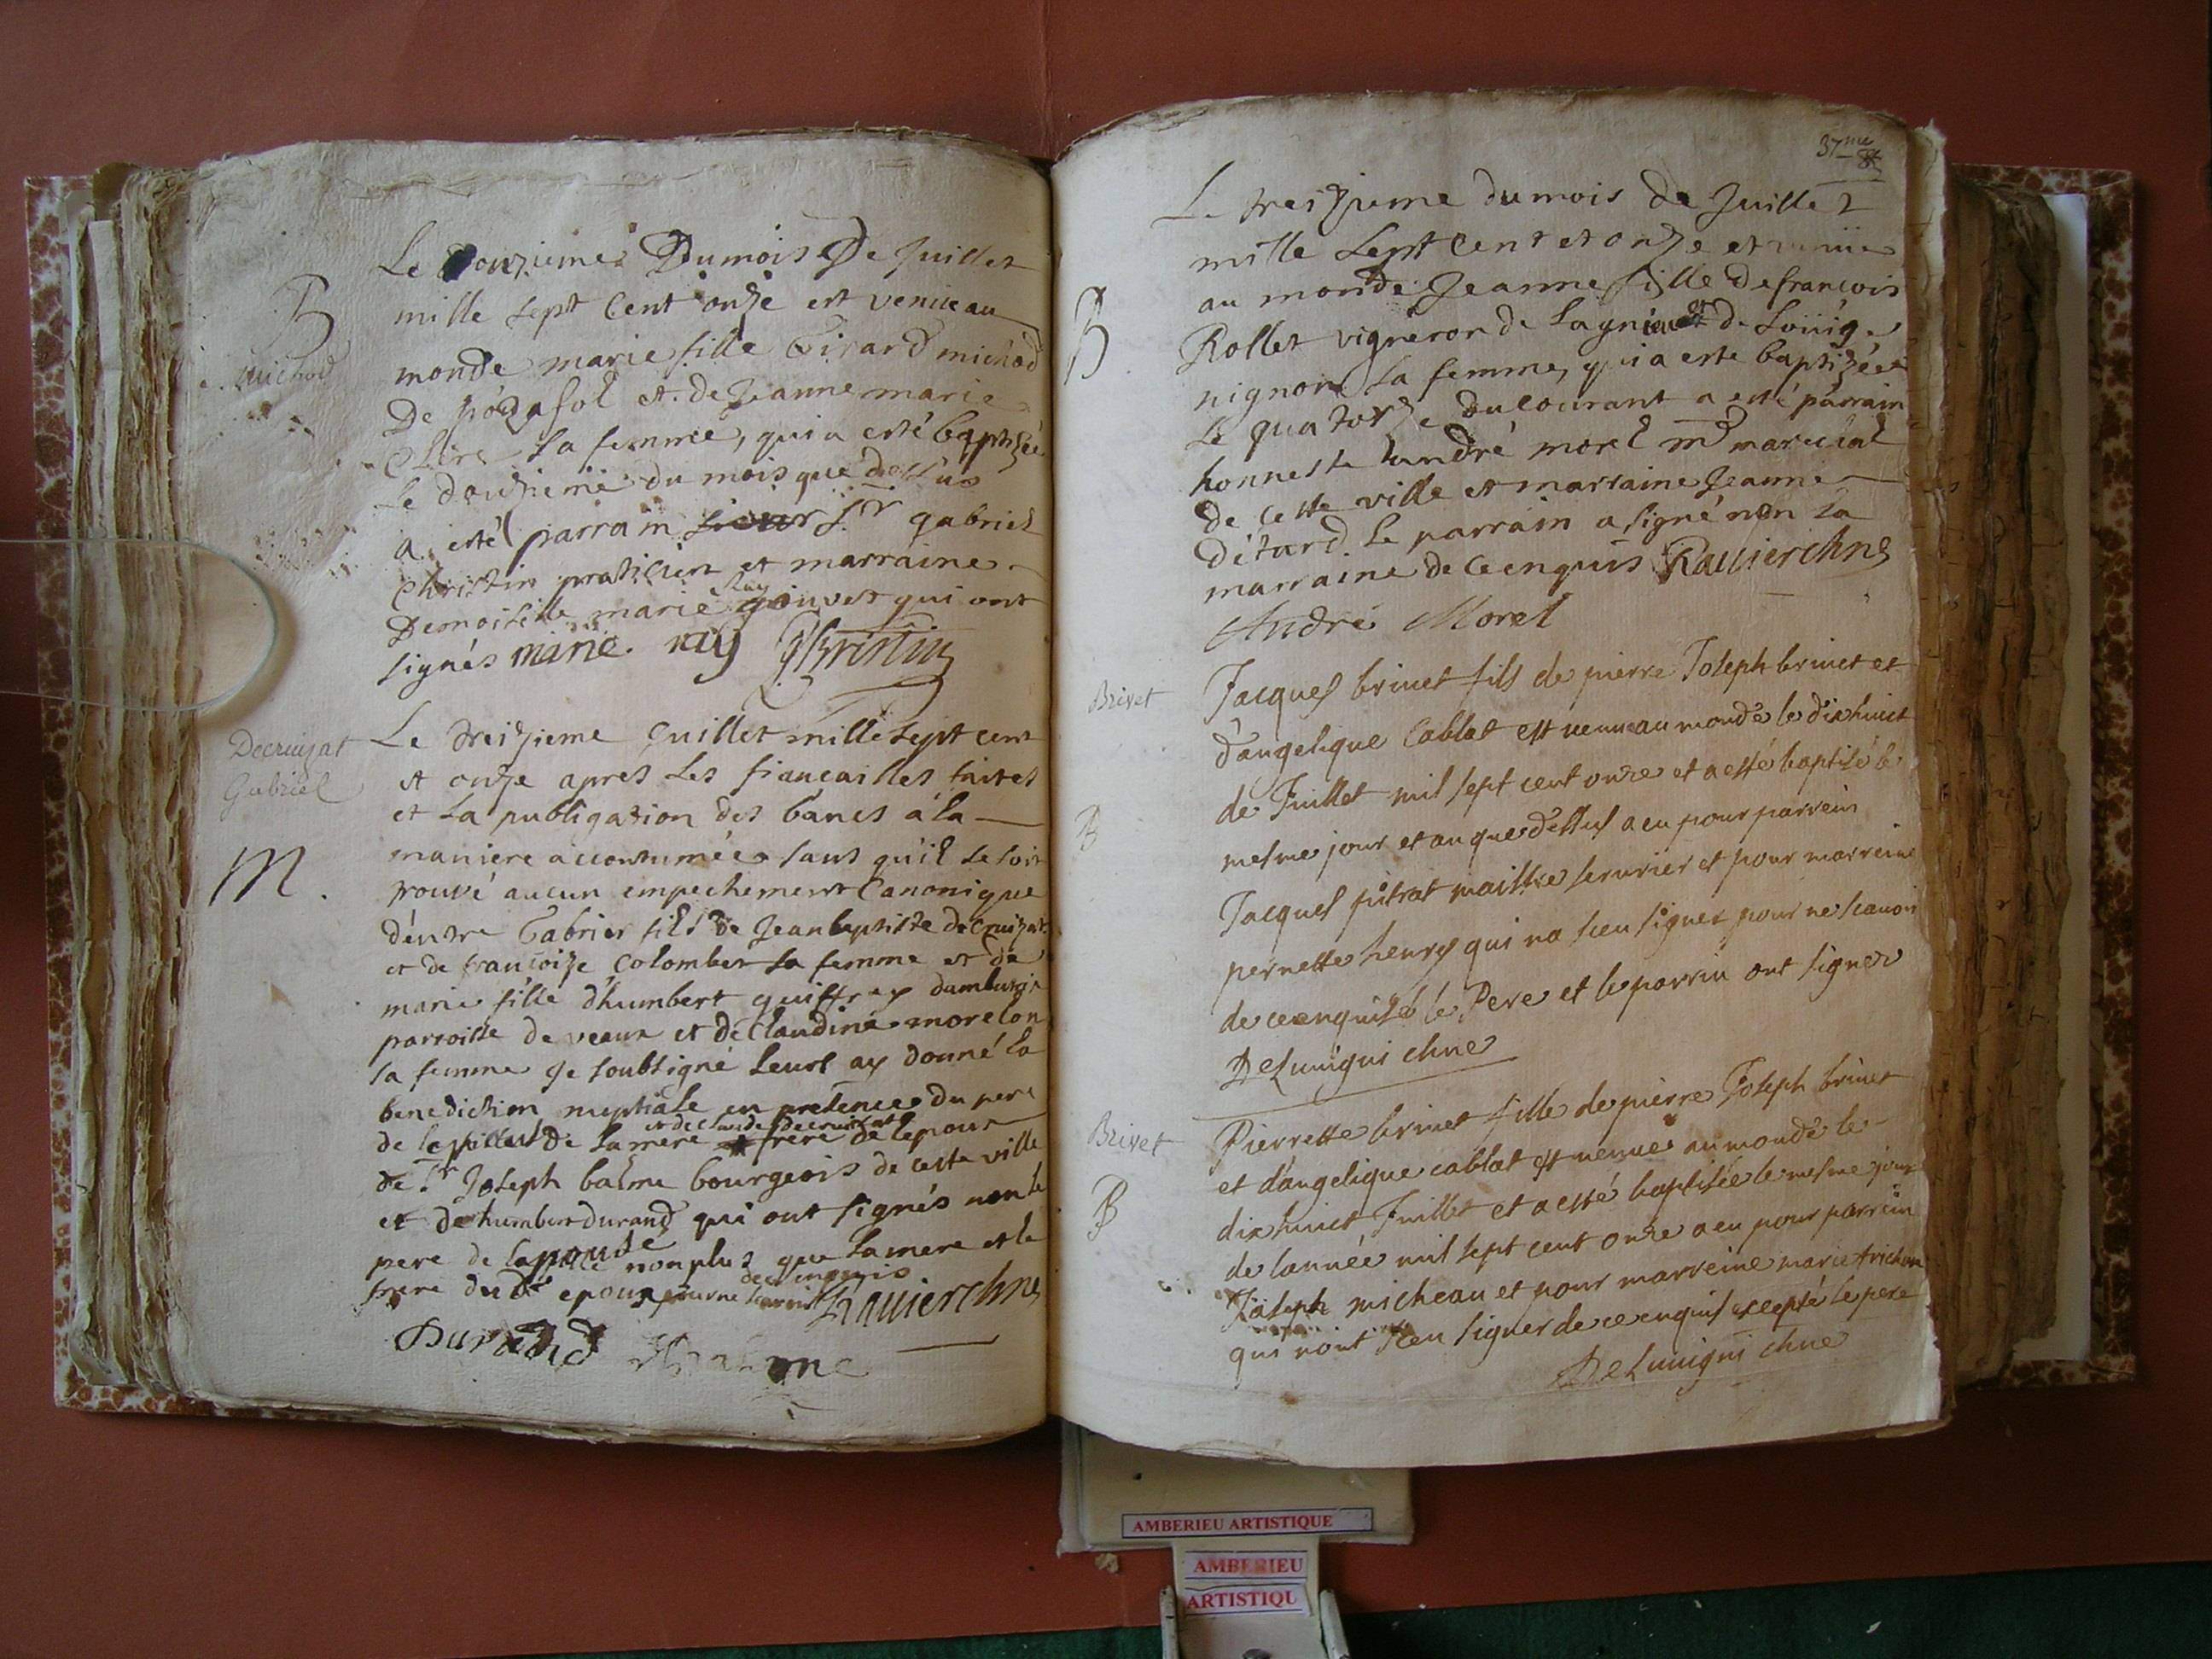 B
Michod
Le douzieme Du mois De Juillet
mille sept Cent onze est venüe au
monde marie fille Girard michod
De et de Jeanne marie
Clire sa femme, qui a esté baptizée
Le douzieme du mois que dessus
a esté parrain Sr gabriel
Christin praticien et marraine
Demoiselle marie Ray gouvet qui ont
signés marie ray Christin
Decruizat
Gabriel
M.
Le treizieme Juillet mille sept cent
et onze apres les fiancailles faites
et la publigation des bancs à la
maniere accoutumée sans qu'il se soit
trouvé aucun empechement Canonique
d'entre Gabriel fils de Jean baptiste decruizat
et de francoize Colombet sa femme et de
marie fille d'humbert guiffray
parroisse de veaux et de Claudine morelon
sa femme Je soubsigné leurs ay donné la
benediction nuptiale en presence du pere
de et de la mere et de Claude decruizat frere de lepoux
de Sr Joseph balme bourgeois de ceste ville
et de humbert durand qui ont signés non le
pere de lepouse non plus que la mere et le
frere du dt epoux pour ne scavoir de ce enquis Ravier chne
Durand JBalme
37me
Le treizieme du mois de Juillet
mille sept Cent et onze et venüe
au monde Jeanne fille de francois
B
Rollet vigneron de Lagnieu et de Loüige
nignon sa femme, qui a esté baptizée
Le quatorze du courant a esté parrain
honneste andré morel me marechal
de ceste ville et marraine Jeanne
détard. Le parrain a signé non la
marraine de ce enquis Ravier chne
André Morel
Brivet
Jacques brivet fils de pierre Joseph brivet et
d'angelique Cablat est venu au monde le dixhuict
de Juillet mil sept cent onze et a esté baptisé le
B
mesme jour et an que dessus a eu pour parrein
Jacques putrat maistre serurier et pour marreine
pernette henry qui na sceu signer pour ne scavoir
de ce enquise le Pere et le parrin ont signer
DeLuvigni chne
Brivet
Pierrette brivet fille de pierre Joseph brivet
et d'angelique cablat est venue au monde le
B
dixhuict Juillet et a esté baptisée le mesme jour
de lannée mil sept cent onze a eu pour parrein
Joseph micheau et pour marreine marie trichon
qui n'ont sceu signer de ce enquis excepté le pere
DeLuvigni chne
AMBERIEU ARTISTIQUE
AMBERIEU
ARTISTIQU